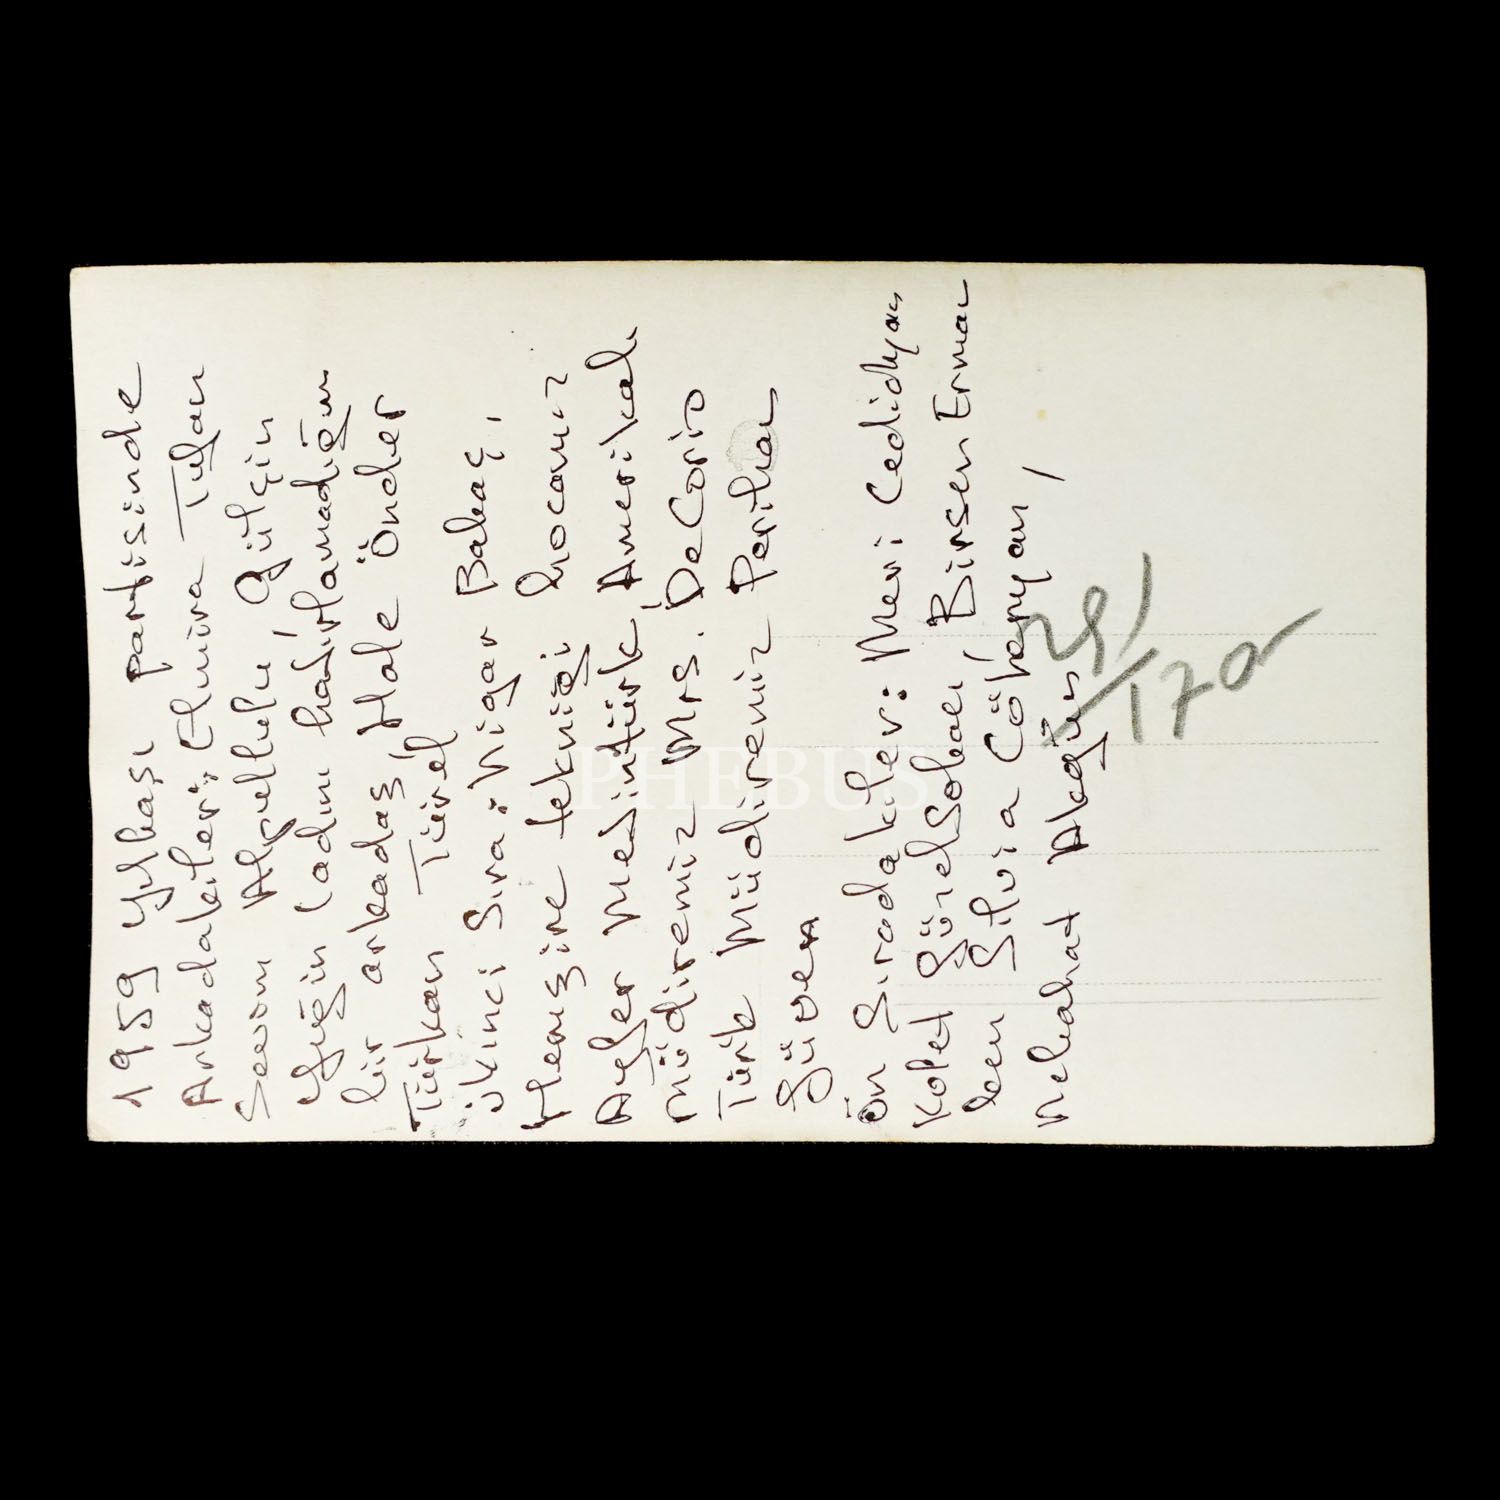 1959 Yılbaşı partisinde
Arkadakiler: Elmira Tufan
Sevim Gülçin
Yeğin (adını hatırlamadığım
bir arkadaş, Hale Önder
Türkan Türel
ikinci Sıra: Nigar Bakaç,
Hemşire tekniği hocamız
Ayfer Mesintürk, Amerikalı
Müdiremiz Mrs. DeCorio
Türk Müdiremiz Perihan
Güven
Ön Siradakiler: Meri Cedidyan
Kolet Birsen Erman
ben Silvia
Nebahat Akgün
29/170
PHEBUS